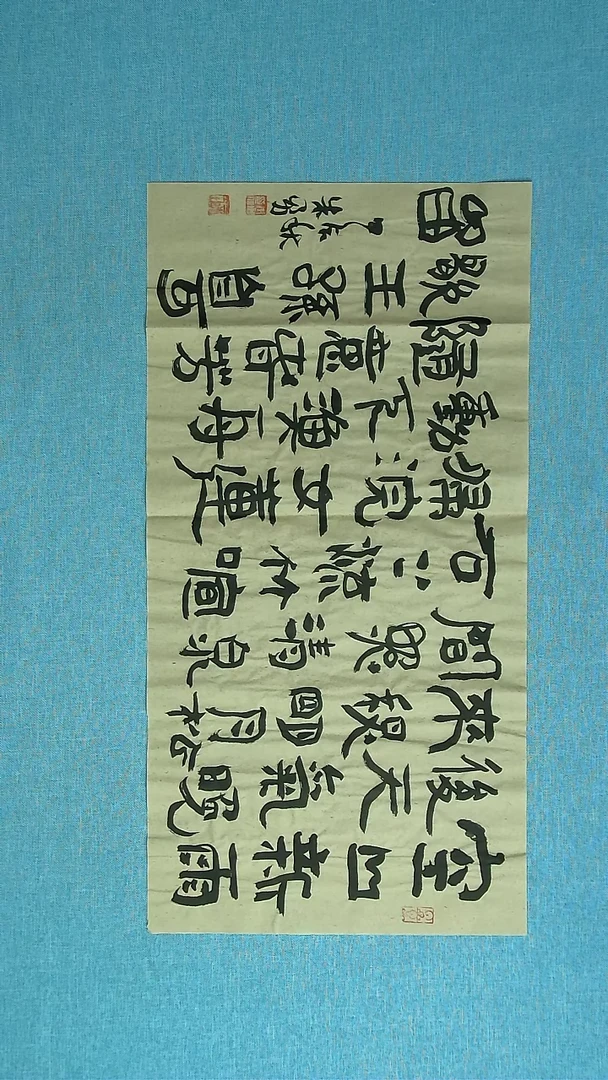 空山新雨
後天氣晚
來秋明月松
間照清泉
石上流竹喧
歸浣女蓮
動下漁舟
隨意春芳
歇王孫自可
留